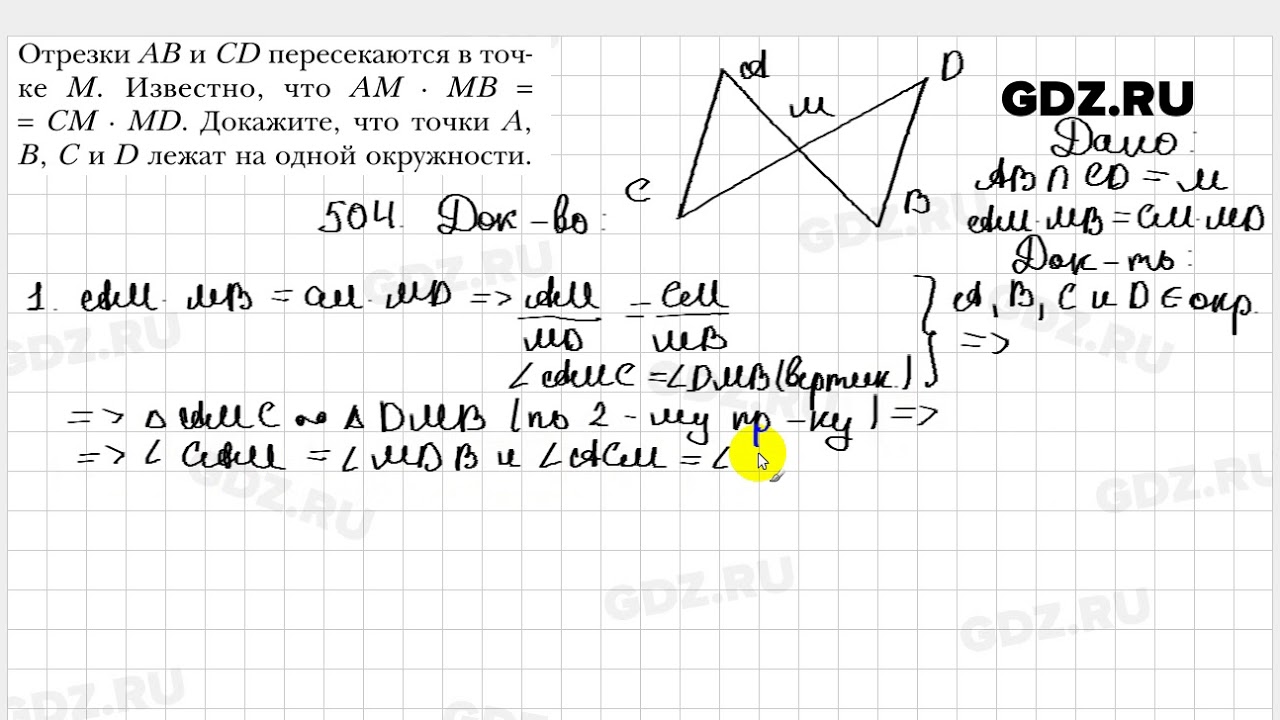 Отрезки AB и CD пересекаются в точ-
ке M. Известно, что AM · MB =
= CM · MD. Докажите, что точки A,
B, C и D лежат на одной окружности.
A
D
M
C
B
GDZ.RU
Дано:
AB∩CD = M
AM·MB = CM·MD
Док-ть:
A, B, C и D ∈ окр.
504. Док-во:
1. AM · MB = CM · MD => AM/MD = CM/MB
∠AMC = ∠DMB (вертик.)
=>
=> △AMC ∾ △DMB (по 2-му пр-ку) =>
=> ∠CAM = ∠MDB и ∠ACM = ∠
GDZ.RU
GDZ.RU
GDZ.RU
GDZ.RU
GDZ.RU
GDZ.RU
GDZ.RU
GDZ.RU
GDZ.RU
GDZ.RU
GDZ.RU